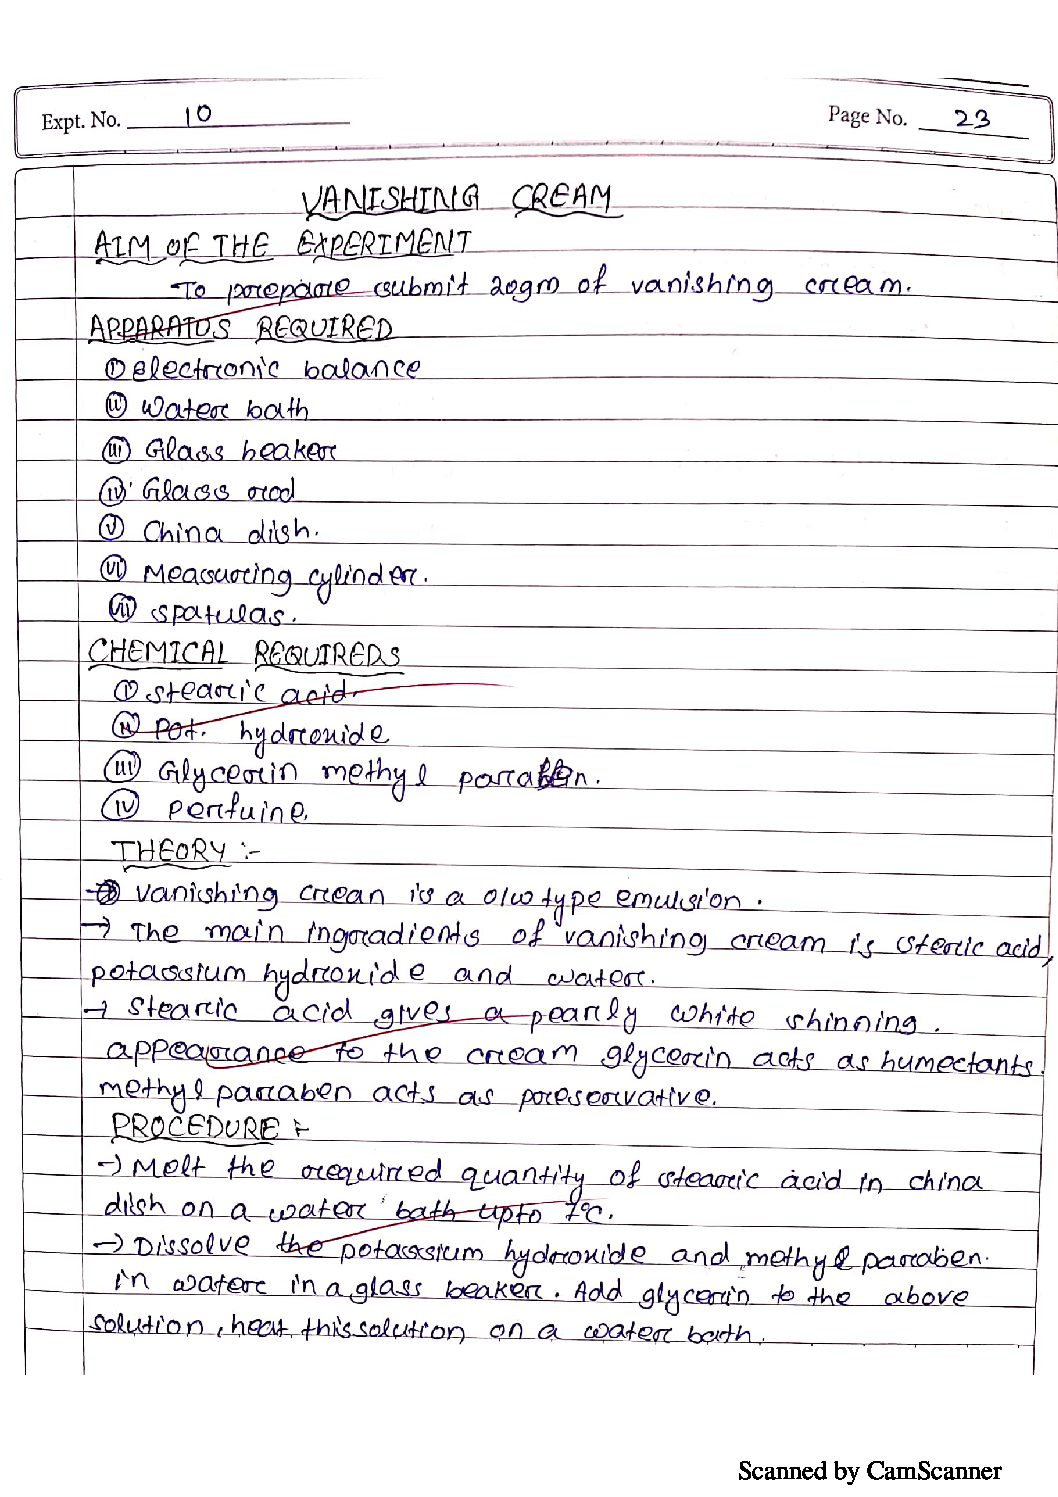 Expt. No. 10
Page No. 23
VANISHING CREAM
AIM OF THE EXPERIMENT
To prepare submit 20gm of vanishing cream.
APPARATUS REQUIRED
(i) electronic balance
(ii) Water bath
(iii) Glass beaker
(iv) Glass rod
(v) China dish.
(vi) Measuring cylinder.
(vii) spatulas.
CHEMICAL REQUIREDS
(i) stearic acid.
(ii) Pot. hydroxide
(iii) Glycerin methyl paraben.
(iv) perfuine.
THEORY :-
→ vanishing crean is a o/w type emulsion.
→ The main ingradients of vanishing cream is steric acid,
potassium hydroxide and water.
→ Stearic acid gives a pearly white shinning.
appearance to the cream glycerin acts as humectants.
methyl paraben acts as preservative.
PROCEDURE :-
→ Melt the required quantity of stearic acid in china
dish on a water bath upto 7°c.
→ Dissolve the potassium hydroxide and methyl paraben.
in water in a glass beaker. Add glycerin to the above
solution, heat this solution on a water bath.
Scanned by CamScanner